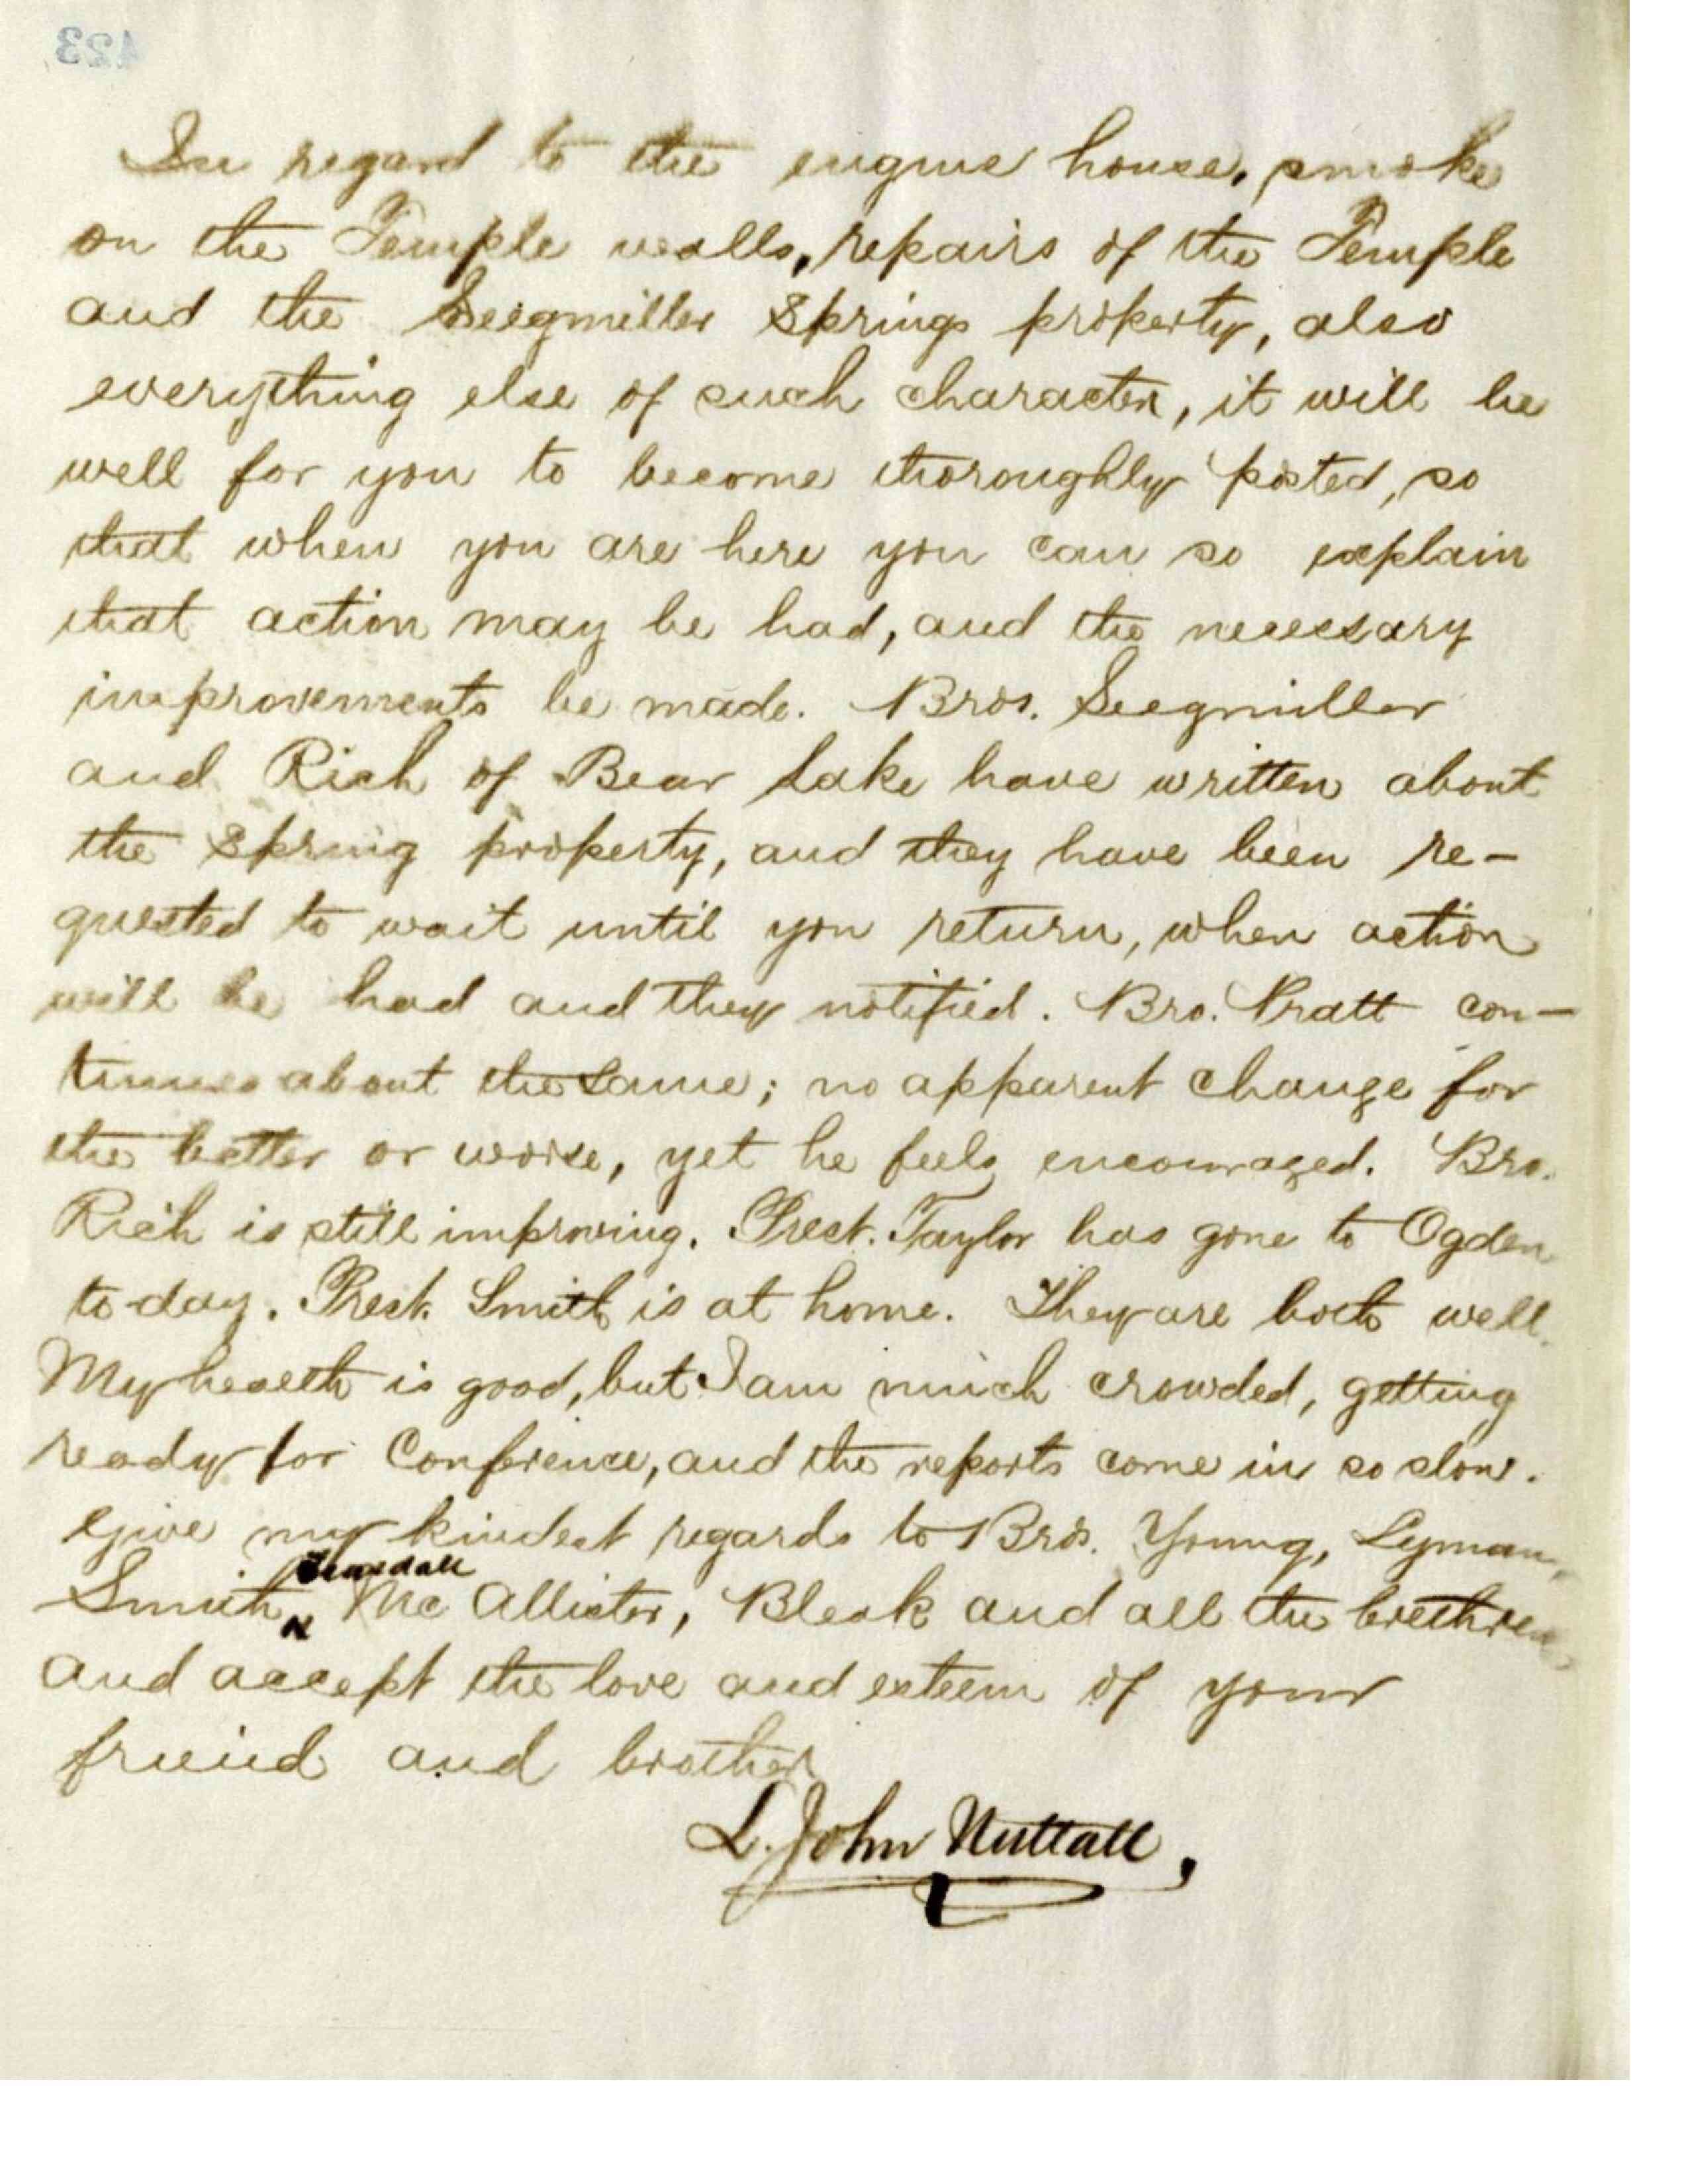 423
In regard to the engine house, smoke
on the Temple walls, repairs of the Temple
and the Seegmiller Springs property, also
everything else of such character, it will be
well for you to become thoroughly posted, so
that when you are here you can so explain
that action may be had, and the necessary
improvements be made. Bros. Seegmiller
and Rich of Bear Lake have written about
the Spring property, and they have been re-
quested to wait until you return, when action
will be had and they notified. Bro. Pratt con-
tinues about the same; no apparent change for
the better or worse, yet he feels encouraged. Bro.
Rich is still improving. Prest. Taylor has gone to Ogden
to-day. Prest. Smith is at home. They are both well.
My health is good, but I am much crowded, getting
ready for Conference, and the reports come in so slow.
Give my kindest regards to Bros. Young, Lyman,
Teasdale
Smith, Mc Allister, Bleak and all the brethren,
and accept the love and esteem of your
friend and brother
L. John Nuttall,